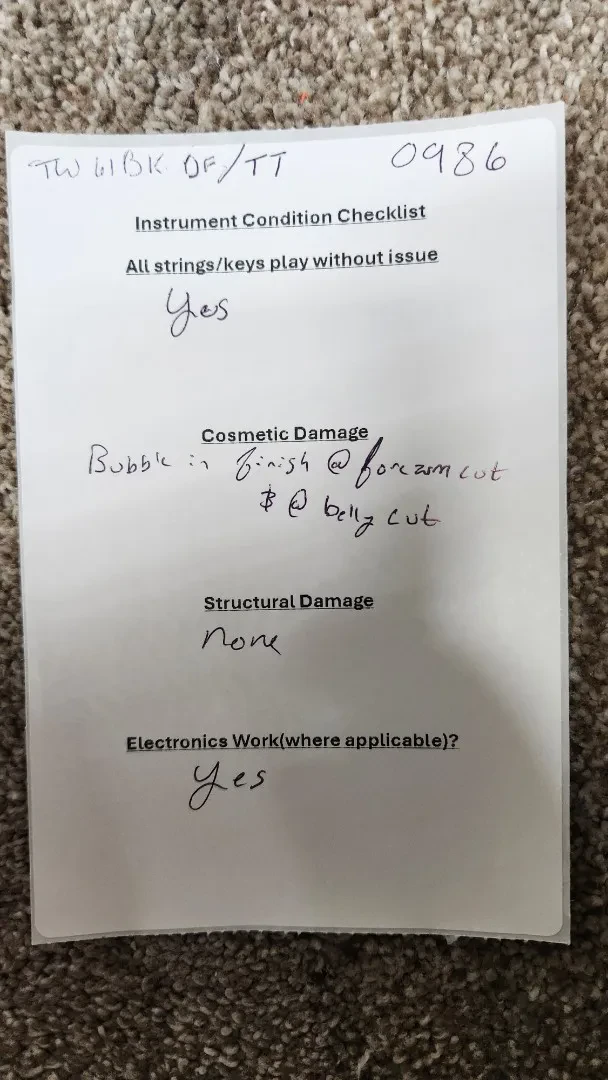 TW 61BK DF/TT 0986
Instrument Condition Checklist
All strings/keys play without issue
Yes
Cosmetic Damage
Bubble in finish @ forearm cut
& @ belly cut
Structural Damage
none
Electronics Work(where applicable)?
Yes